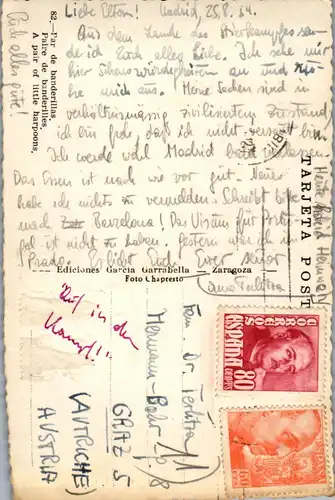 Liebe Eltern! Madrid, 25.8.54.
Aus dem Lande des Stierkampfes sen-
de ich Euch alles Liebe. Ich sehe mir
hier Sehenswürdigkeiten an und
mich aus. Meine Sachen sind in
verhältnismässig zivilisiertem Zustand,
ich bin froh, daß ich nicht
Ich werde wohl Madrid verlassen.
Das Essen ist nach wie vor gut. Neues
habe ich nichts zu vermelden. Schreibt bitte
nach Barcelona! Das Visum für Portu-
gal ist nicht zu haben. Gestern war ich im
Prado. Es Euch Euer
Euch alles gute!
82.—Par de banderillas.
Paire de banderilles.
A pair of little harpoons,
TARJETA POST
Ediciones García Garrabella — Zaragoza
Foto Chapresto
Auf in den
Kampf!!
Fam. Dr.
Hermann-Bahr
GRAZ 5
(AUTRICHE)
AUSTRIA
CORREOS
ESPAÑA
80
CENTS
ESPAÑA